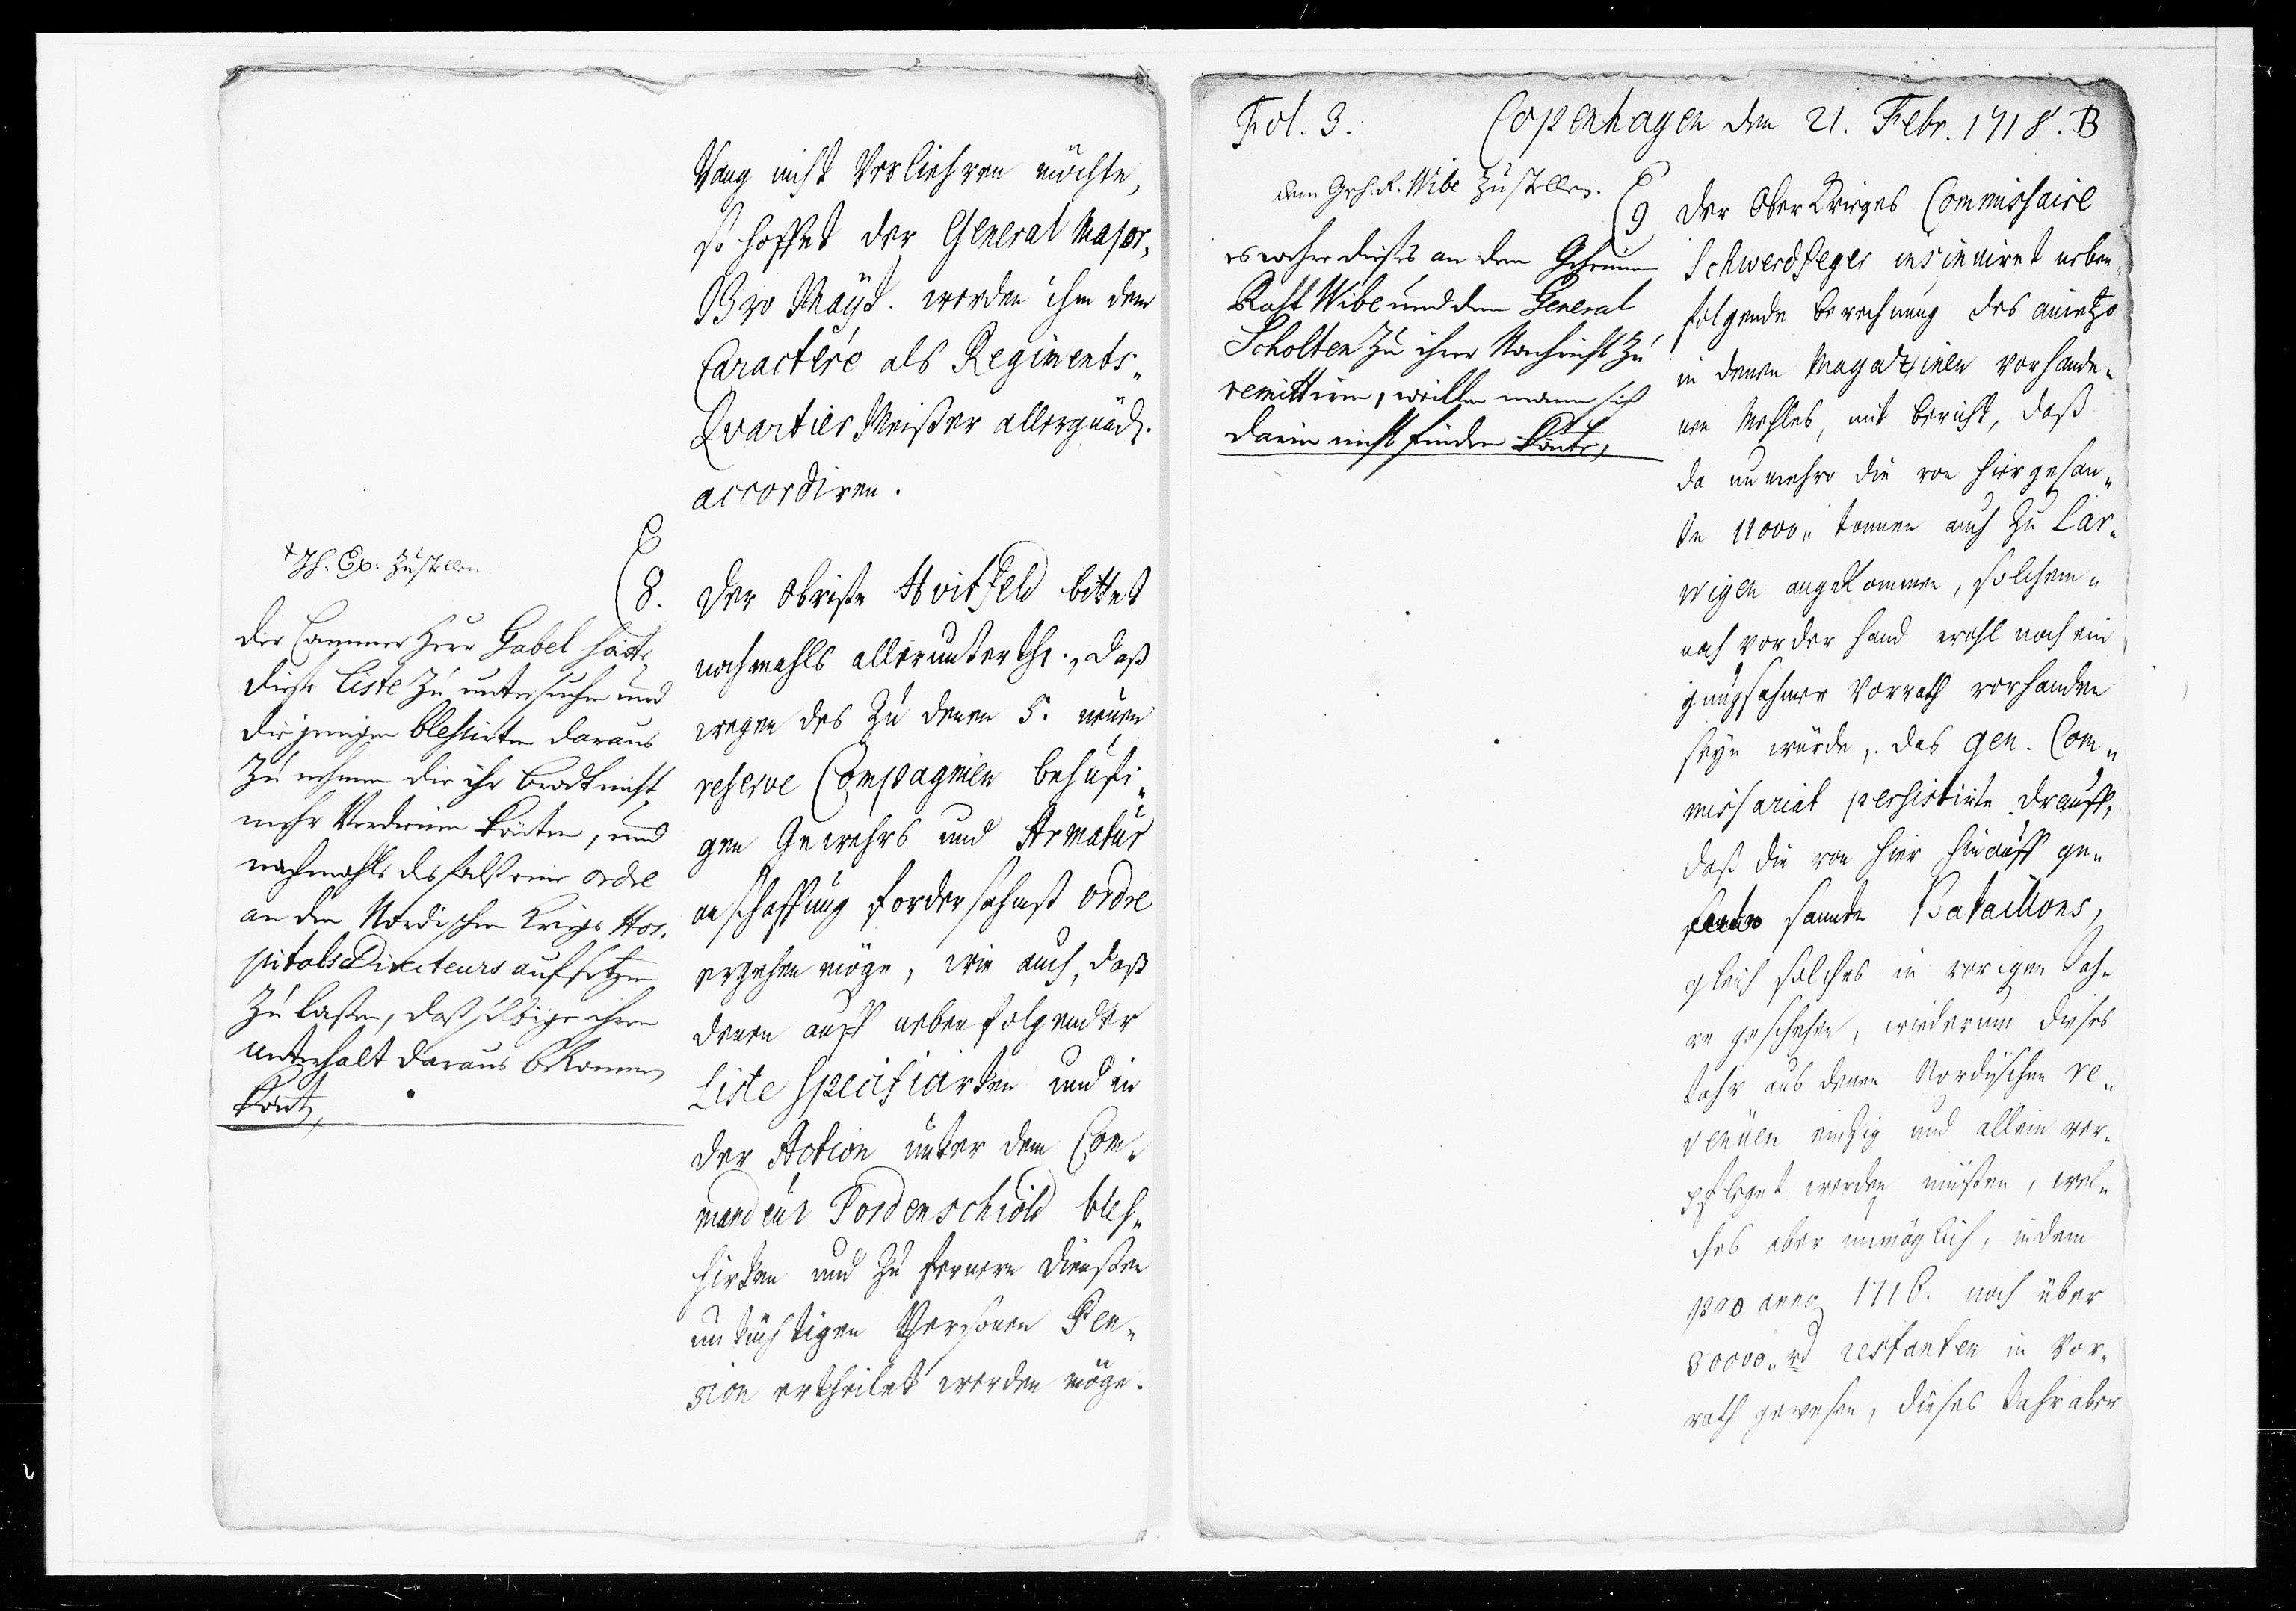 Rang nicht Verliehren möchte,
so hoffet der General Major,
Ew. Mayst. werden ihm den
Caractére als Regiments-
Quartier Meister allergnäd.
accordiren.
Zustellen
8.
Der Cammer Herr Gabel hätte
diese Liste zu untersuchen und
diejenigen blessirten daraus
zu nehmen die ihr brodt nicht
mehr Verdienen könten, und
nachmahls desfalß eine ordre
an den Nordischen Krigs Hos-
pitals Directeurs auffsetzen
zu lassen, daß selbige ihren
unterhalt daraus bekommen
könten,
Der Obriste Hvitfeld bittet
nochmahls allerunterth., daß
wegen des zu denen 5. neuen
reserve Compagnien behufi-
gen Gewehrs und Armatur
anschaffung fordersahmst ordre
ergehen möge, wie auch, daß
denen auff nebenfolgender
Liste specificirten und in
der Action unter dem Com-
mandeur Tordenschiold bles-
sirten und zu fernern diensten
untüchtigen Persohnen Pen-
sion ertheilet werden möge.
Fol. 3. Copenhagen den 21. Febr. 1718. B
dem Geh. R. Wibe zustellen.
9
es wehre dieses an dem Geheimen
Raht Wibe und dem General
Scholten zu ihrer Nachricht zu
remittiren, weillen mann sich
darin nicht finden könte,
Der Ober Krieges Commissaire
Schwerdfeger insinuiret neben-
folgende berechnung des anietzo
in denen Magazinen vorhande-
nen Mehles, mit bericht, daß
da nunmehro die von hier gesan-
te 11000. tonnen auch zu Lar-
wigen angekommen, solchem-
nach vor der hand wohl noch ein
gnugsahmer Vorrath vorhanden
seyn würde, das gen. Com-
missariat persistirte drauff,
daß die von hier hinauff ge-
sandte Bataillons,
gleich solches in vorigen Jah-
re geschehen, wiederum dieses
Jahr aus denen Nordischen re-
venuen eintzig und allein ver-
pfleget werden müsten, wel-
ches aber unmöglich, indem
pro anno 1716. noch über
80000. rd restanten in Vor-
rath gewesen, dieses Jahr aber